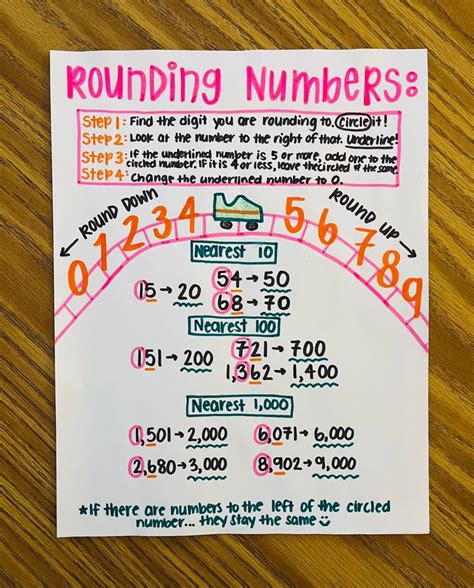 Rounding Numbers:
Step 1: Find the digit you are rounding to. Circle it!
Step 2: Look at the number to the right of that. Underline!
Step 3: If the underlined number is 5 or more, add one to the
circled number. If it is 4 or less, leave the circled # the same.
Step 4: Change the underlined number to 0.
← Round Down
Round Up →
0 1 2 3 4 5 6 7 8 9
Nearest 10
15 → 20
54 → 50
68 → 70
Nearest 100
151 → 200
721 → 700
1,362 → 1,400
Nearest 1,000
1,501 → 2,000
6,071 → 6,000
2,680 → 3,000
8,902 → 9,000
*If there are numbers to the left of the circled
number... they stay the same ☺